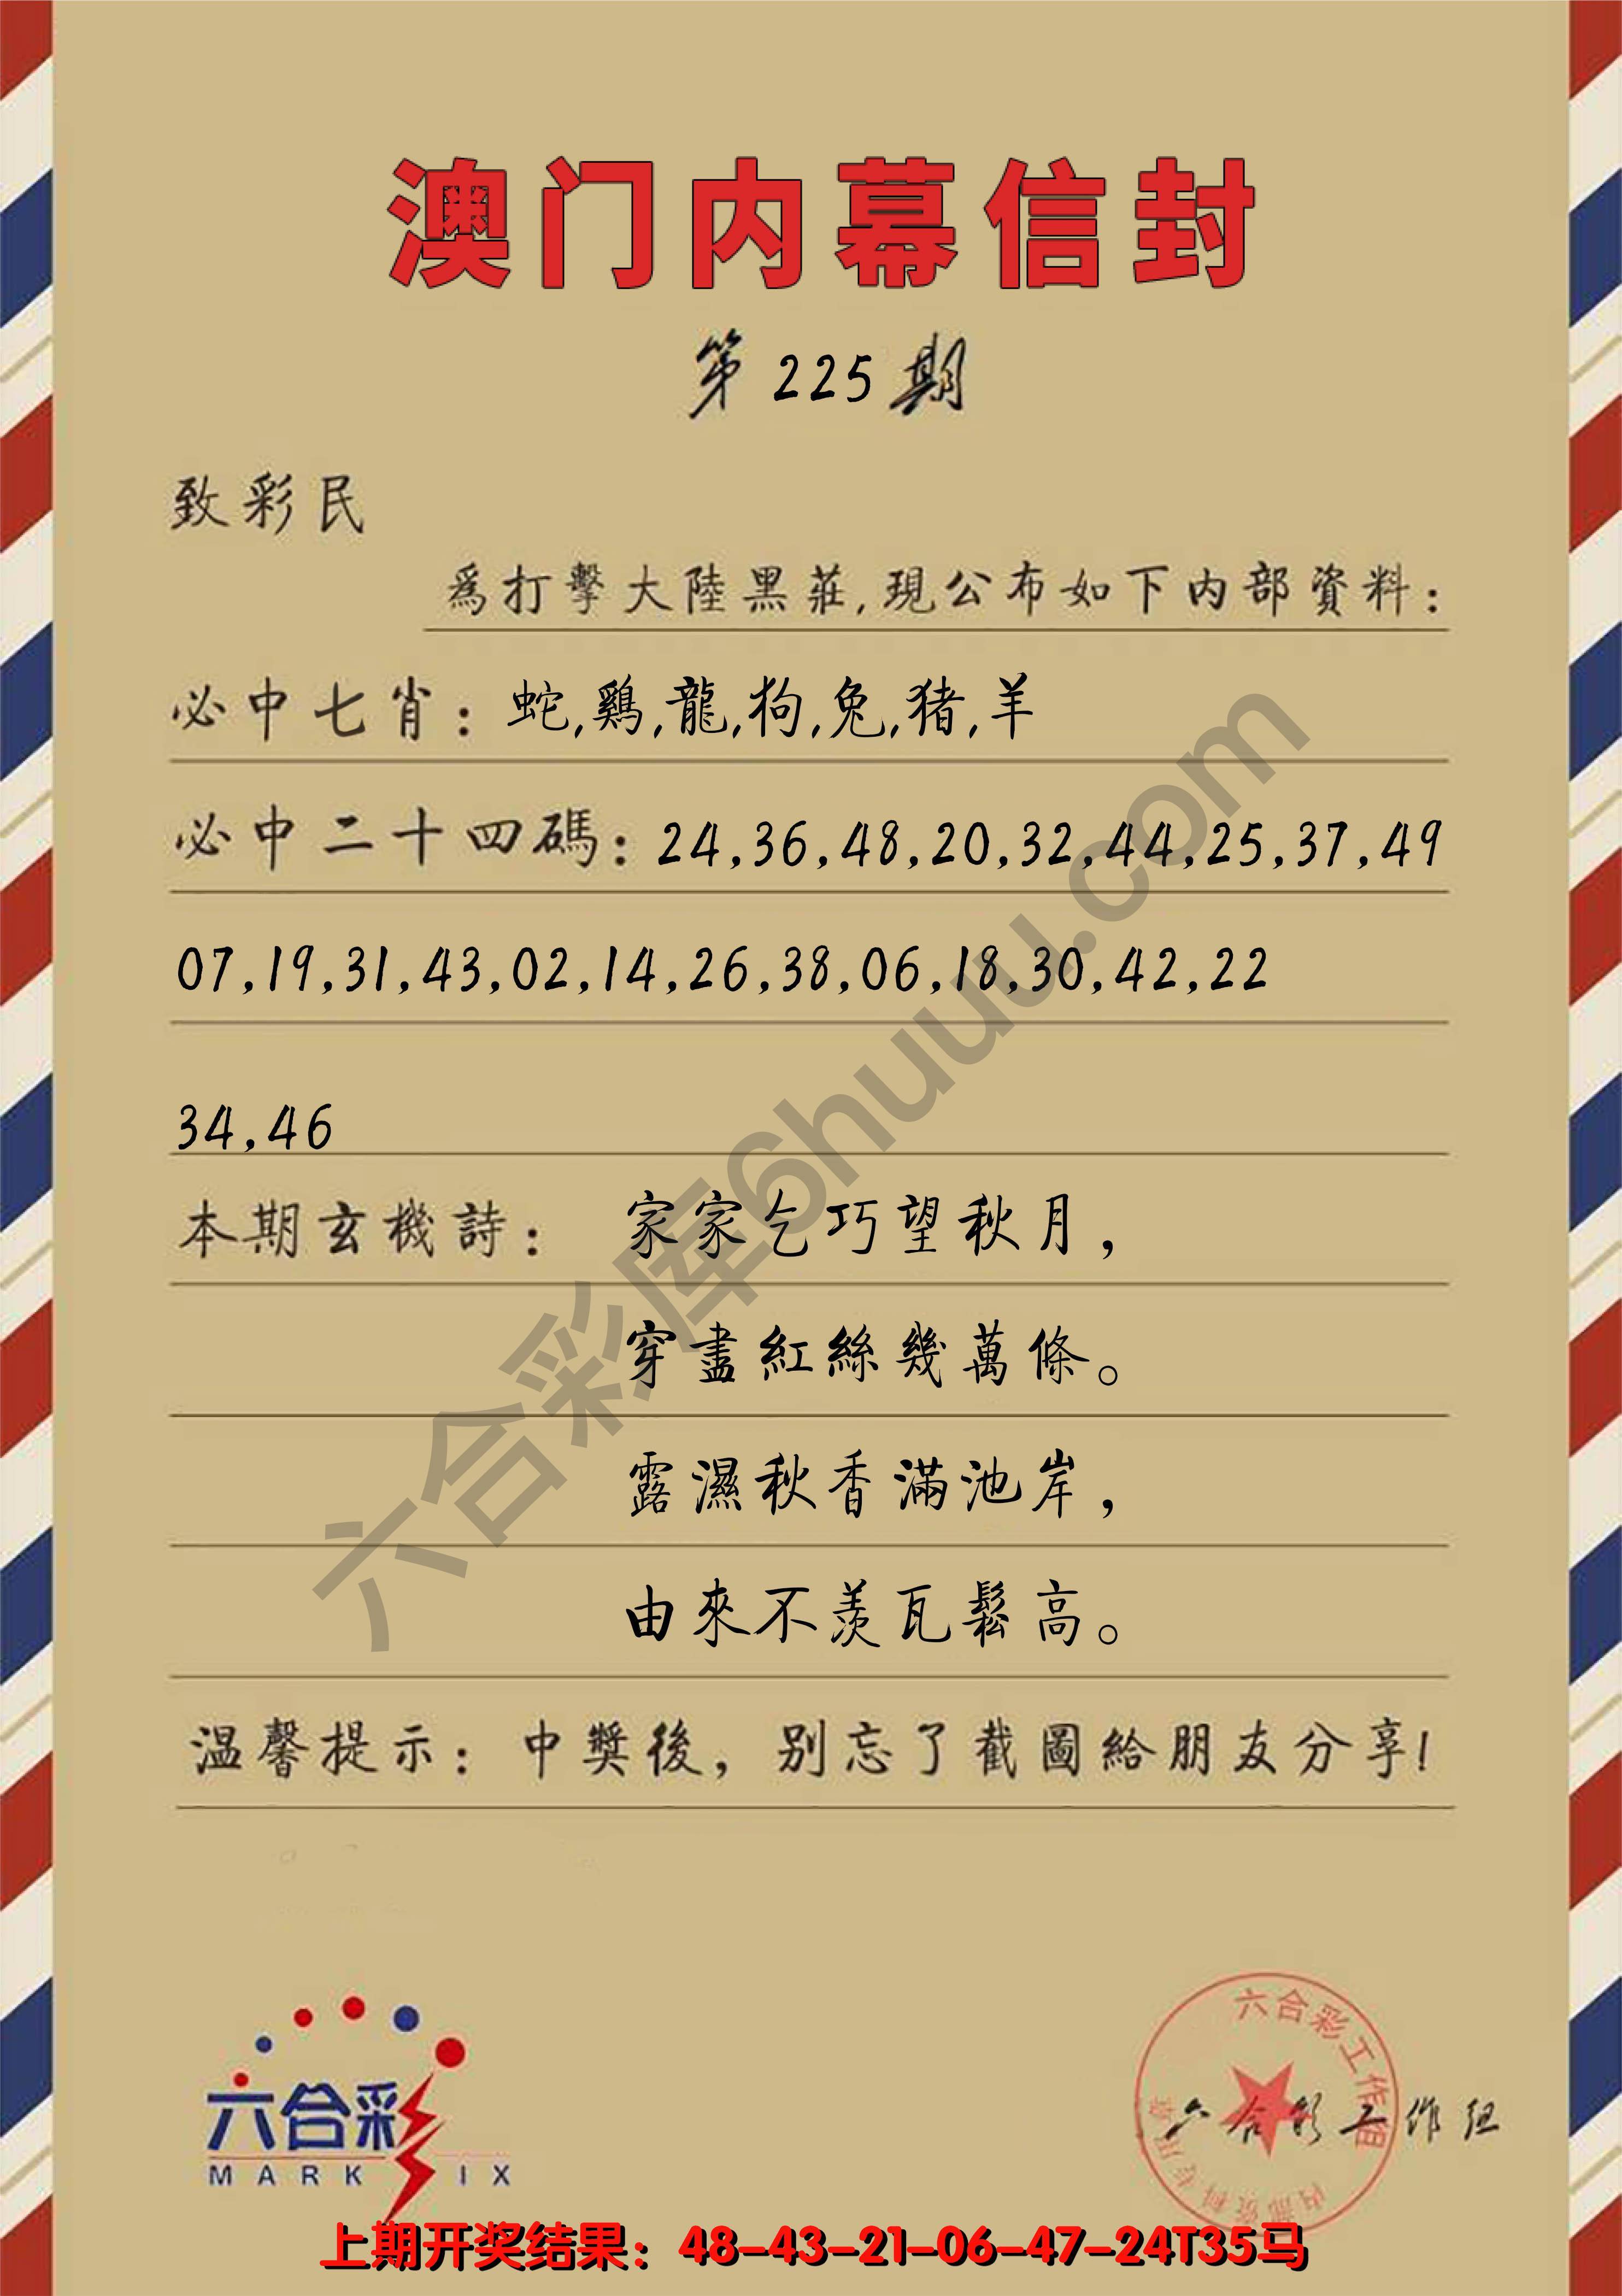 澳门内幕信封
第225期
致彩民
為打擊大陸黑莊,現公布如下内部資料：
必中七肖：蛇,鷄,龍,狗,兔,猪,羊
必中二十四碼：24,36,48,20,32,44,25,37,49
07,19,31,43,02,14,26,38,06,18,30,42,22
34,46
本期玄機詩：家家乞巧望秋月，
穿盡紅絲幾萬條。
露濕秋香滿池岸，
由來不羨瓦鬆高。
温馨提示：中獎後，别忘了截圖給朋友分享!
六合彩库6huuu.com
六合彩
MARK IX
六合彩工作组
内部资料专用章
六合彩工作组
上期开奖结果：48-43-21-06-47-24T35马